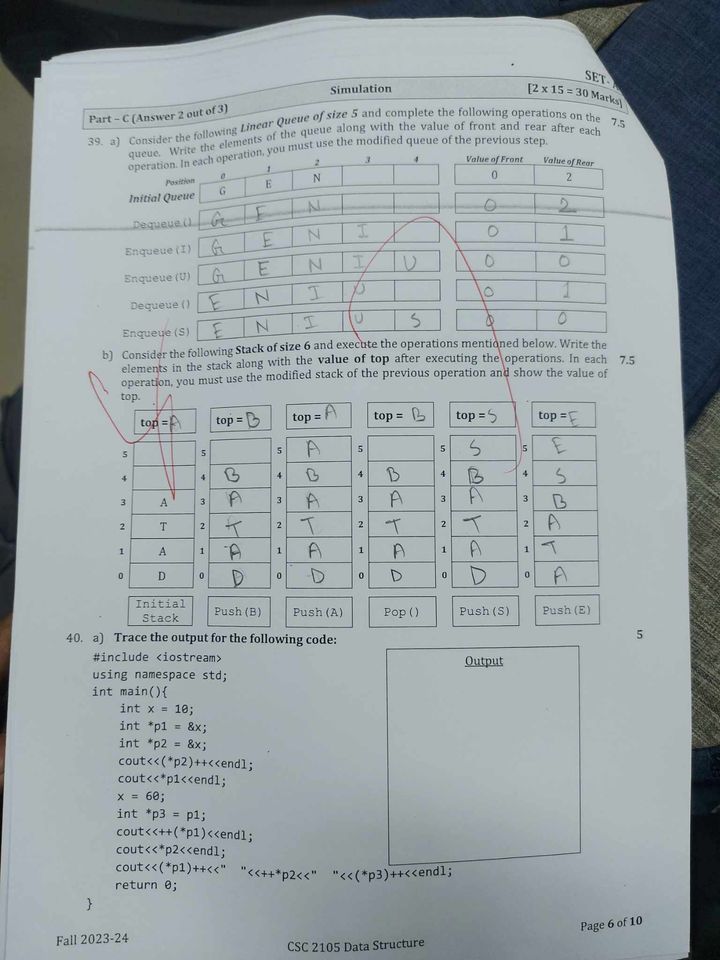 SET-
Simulation
[2 x 15 = 30 Marks]
Part – C (Answer 2 out of 3)
39. a) Consider the following Linear Queue of size 5 and complete the following operations on the 7.5
queue. Write the elements of the queue along with the value of front and rear after each
operation. In each operation, you must use the modified queue of the previous step.
Position 0 1 2 3 4 Value of Front Value of Rear
Initial Queue G E N 0 2
Dequeue() G E N 0 2
Enqueue(I) G E N I 0 1
Enqueue(U) G E N I U 0 0
Dequeue() E N I U 0 1
Enqueue(S) E N I U S 0 0
b) Consider the following Stack of size 6 and execute the operations mentioned below. Write the
elements in the stack along with the value of top after executing the operations. In each 7.5
operation, you must use the modified stack of the previous operation and show the value of
top.
top = A top = B top = A top = B top = S top = E
5 5 5 A 5 5 S 5 E
4 4 B 4 B 4 B 4 B 4 S
3 A 3 A 3 A 3 A 3 A 3 B
2 T 2 T 2 T 2 T 2 T 2 A
1 A 1 A 1 A 1 A 1 A 1 T
0 D 0 D 0 D 0 D 0 D 0 A
Initial Stack Push(B) Push(A) Pop() Push(S) Push(E)
40. a) Trace the output for the following code: 5
#include <iostream>
using namespace std;
int main(){
int x = 10;
int *p1 = &x;
int *p2 = &x;
cout<<(*p2)++<<endl;
cout<<*p1<<endl;
x = 60;
int *p3 = p1;
cout<<++(*p1)<<endl;
cout<<*p2<<endl;
cout<<(*p1)++<<" "<<++*p2<<" "<<(*p3)++<<endl;
return 0;
}
Output
Fall 2023-24
CSC 2105 Data Structure
Page 6 of 10